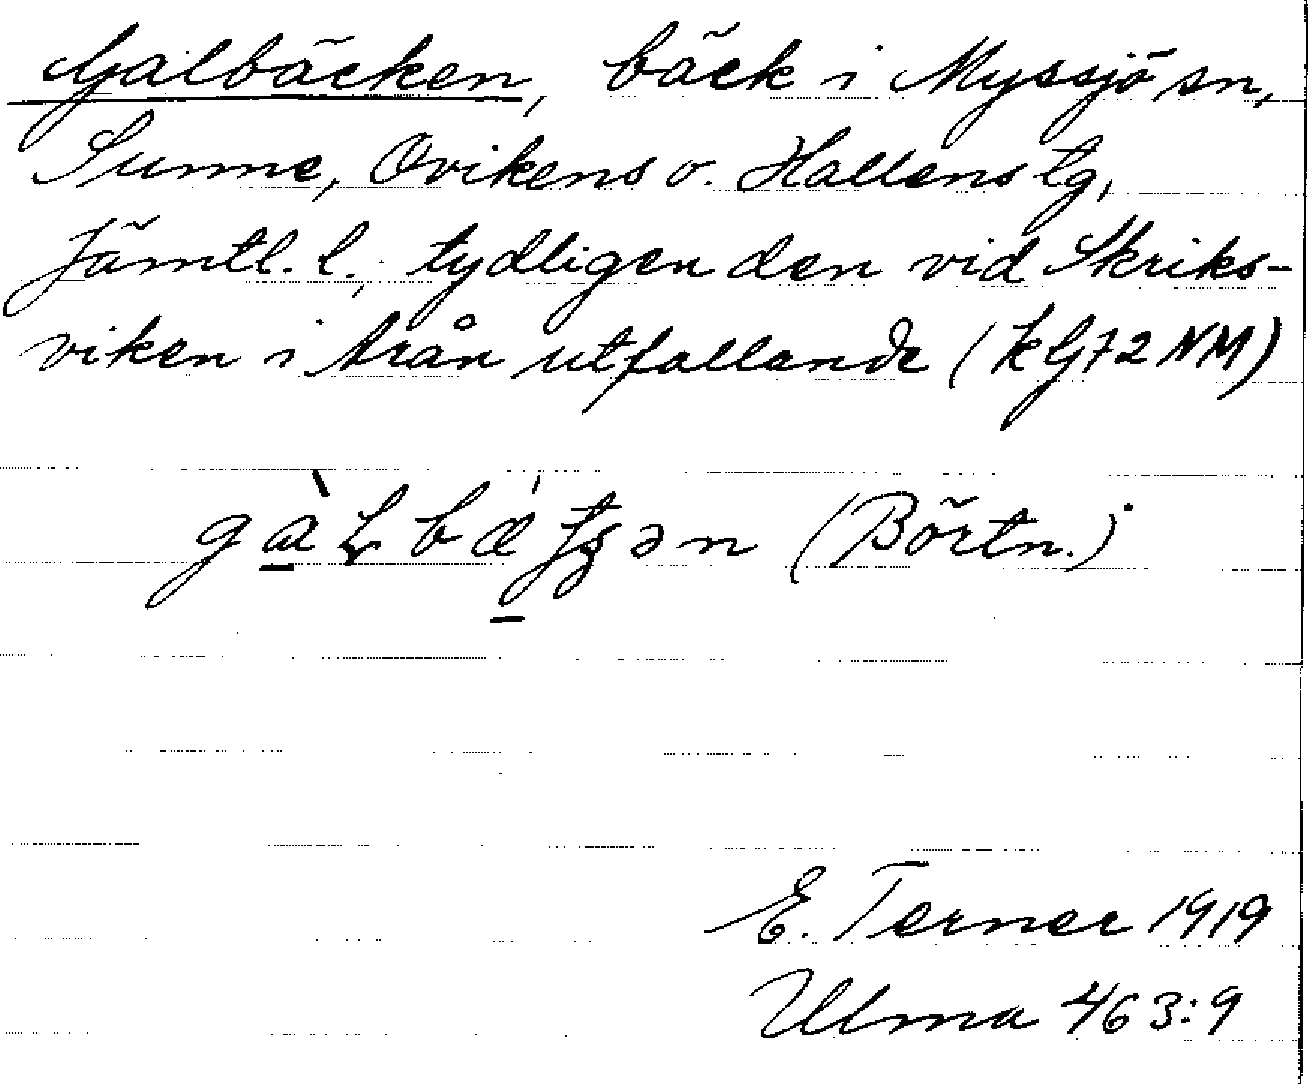 Galbäcken, bäck i Myssjö sn,
Sunne, Ovikens o. Hallens tg,
Jämtl. l.; tydligen den vid Skriks-
viken i Arån utfallande (KG72 NM)
(Börtn.)
E. Terner 1919
Ulma 463:9